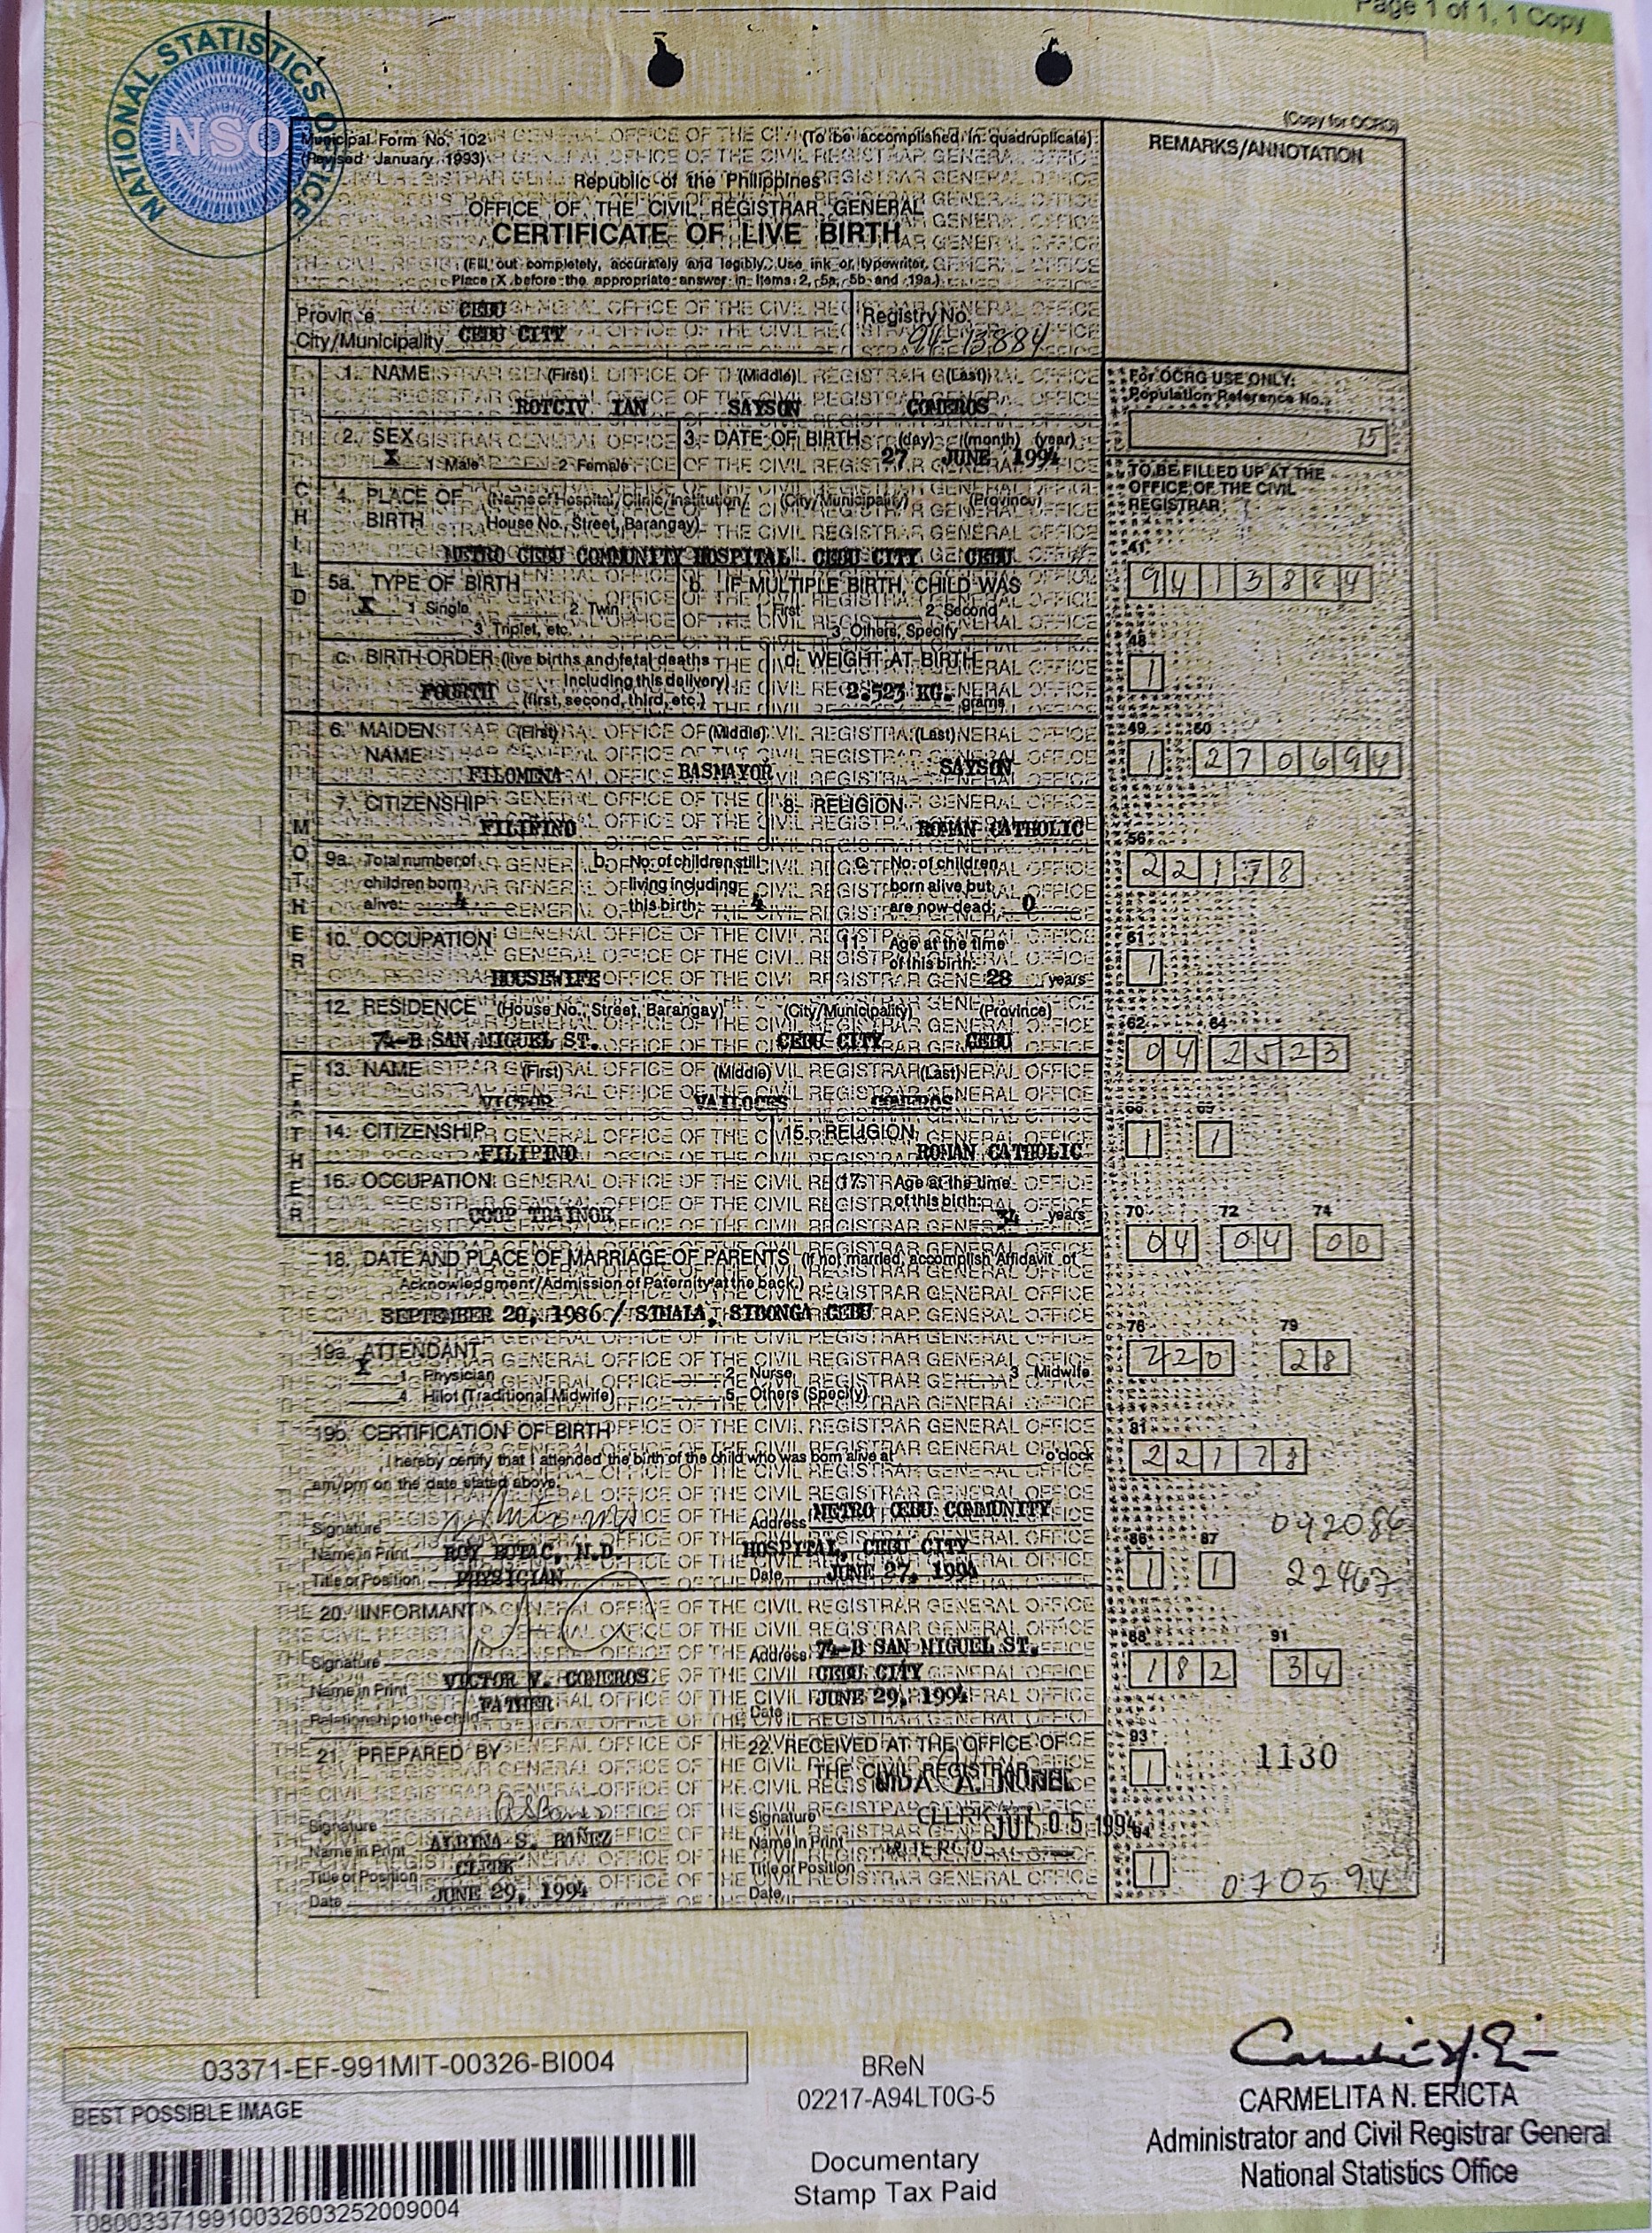 Page 1 of 1, 1 Copy
NATIONAL STATISTICS OFFICE
NSO
(Copy for OCRG)
Municipal Form No. 102
(To be accomplished in quadruplicate)
(Revised January 1993)
Republic of the Philippines
OFFICE OF THE CIVIL REGISTRAR GENERAL
CERTIFICATE OF LIVE BIRTH
(Fill out completely, accurately and legibly. Use ink or typewriter.
Place X before the appropriate answer in Items 2, 5a, 5b and 19a.)
REMARKS/ANNOTATION
Province CEBU
City/Municipality CEBU CITY
Registry No.
94-13884
1. NAME (First) (Middle) (Last)
ROTCIV IAN SAYSON COMEROS
For OCRG USE ONLY:
Population Reference No.
15
2. SEX
X 1 Male 2 Female
3. DATE OF BIRTH (day) (month) (year)
27 JUNE 1994
TO BE FILLED UP AT THE
OFFICE OF THE CIVIL
REGISTRAR
CHILD
4. PLACE OF BIRTH (Name of Hospital/Clinic/Institution/ (City/Municipality) (Province)
House No., Street, Barangay)
METRO CEBU COMMUNITY HOSPITAL CEBU CITY CEBU
41
9413884
5a. TYPE OF BIRTH
X 1 Single 2. Twin
3 Triplet, etc.
b. IF MULTIPLE BIRTH, CHILD WAS
1. First 2. Second
3. Others, Specify
48
1
c. BIRTH ORDER (live births and fetal deaths
including this delivery)
FOURTH (first, second, third, etc.)
d. WEIGHT AT BIRTH
2.523 KG. grams
MOTHER
6. MAIDEN NAME (First) (Middle) (Last)
FILOMENA BASMAYOR SAYSON
49 50
1 270694
7. CITIZENSHIP
FILIPINO
8. RELIGION
ROMAN CATHOLIC
56
22178
9a. Total number of
children born
alive: 4
b. No. of children still
living including
this birth: 4
c. No. of children
born alive but
are now dead: 0
10. OCCUPATION
HOUSEWIFE
11. Age at the time
of this birth: 28 years
61
1
12. RESIDENCE (House No., Street, Barangay) (City/Municipality) (Province)
74-B SAN MIGUEL ST. CEBU CITY CEBU
62 64
04 2523
FATHER
13. NAME (First) (Middle) (Last)
VICTOR VAILOCES COMEROS
68 69
1 1
14. CITIZENSHIP
FILIPINO
15. RELIGION
ROMAN CATHOLIC
16. OCCUPATION
COOP TRAINOR
17. Age at the time
of this birth: 34 years
70 72 74
04 04 00
18. DATE AND PLACE OF MARRIAGE OF PARENTS (If not married, accomplish Affidavit of
Acknowledgment/Admission of Paternity at the back.)
SEPTEMBER 20, 1986 / SIMALA, SIBONGA CEBU
76 79
220 28
19a. ATTENDANT
X 1. Physician 2 Nurse 3 Midwife
4. Hilot (Traditional Midwife) 5. Others (Specify)
19b. CERTIFICATION OF BIRTH
I hereby certify that I attended the birth of the child who was born alive at o'clock
am/pm on the date stated above.
81
22178
Signature
Name in Print ROY BUTAC, M.D.
Title or Position PHYSICIAN
Address METRO CEBU COMMUNITY
HOSPITAL, CEBU CITY
Date JUNE 27, 1994
092086
86 87
1 1
22467
20. INFORMANT
Signature
Name in Print VICTOR V. COMEROS
Relationship to the child FATHER
Address 74-B SAN MIGUEL ST.
CEBU CITY
Date JUNE 29, 1994
88 91
182 34
21. PREPARED BY
Signature
Name in Print ALBINA S. BAÑEZ
Title or Position CLERK
Date JUNE 29, 1994
22. RECEIVED AT THE OFFICE OF
THE CIVIL REGISTRAR
NIDA A. NUÑEL
Signature
CLERK
JUL 05 1994
Name in Print
Title or Position
Date
93
1
1130
94
1
070594
03371-EF-991MIT-00326-BI004
BEST POSSIBLE IMAGE
T080033719910032603252009004
BReN
02217-A94LT0G-5
Documentary
Stamp Tax Paid
CARMELITA N. ERICTA
Administrator and Civil Registrar General
National Statistics Office